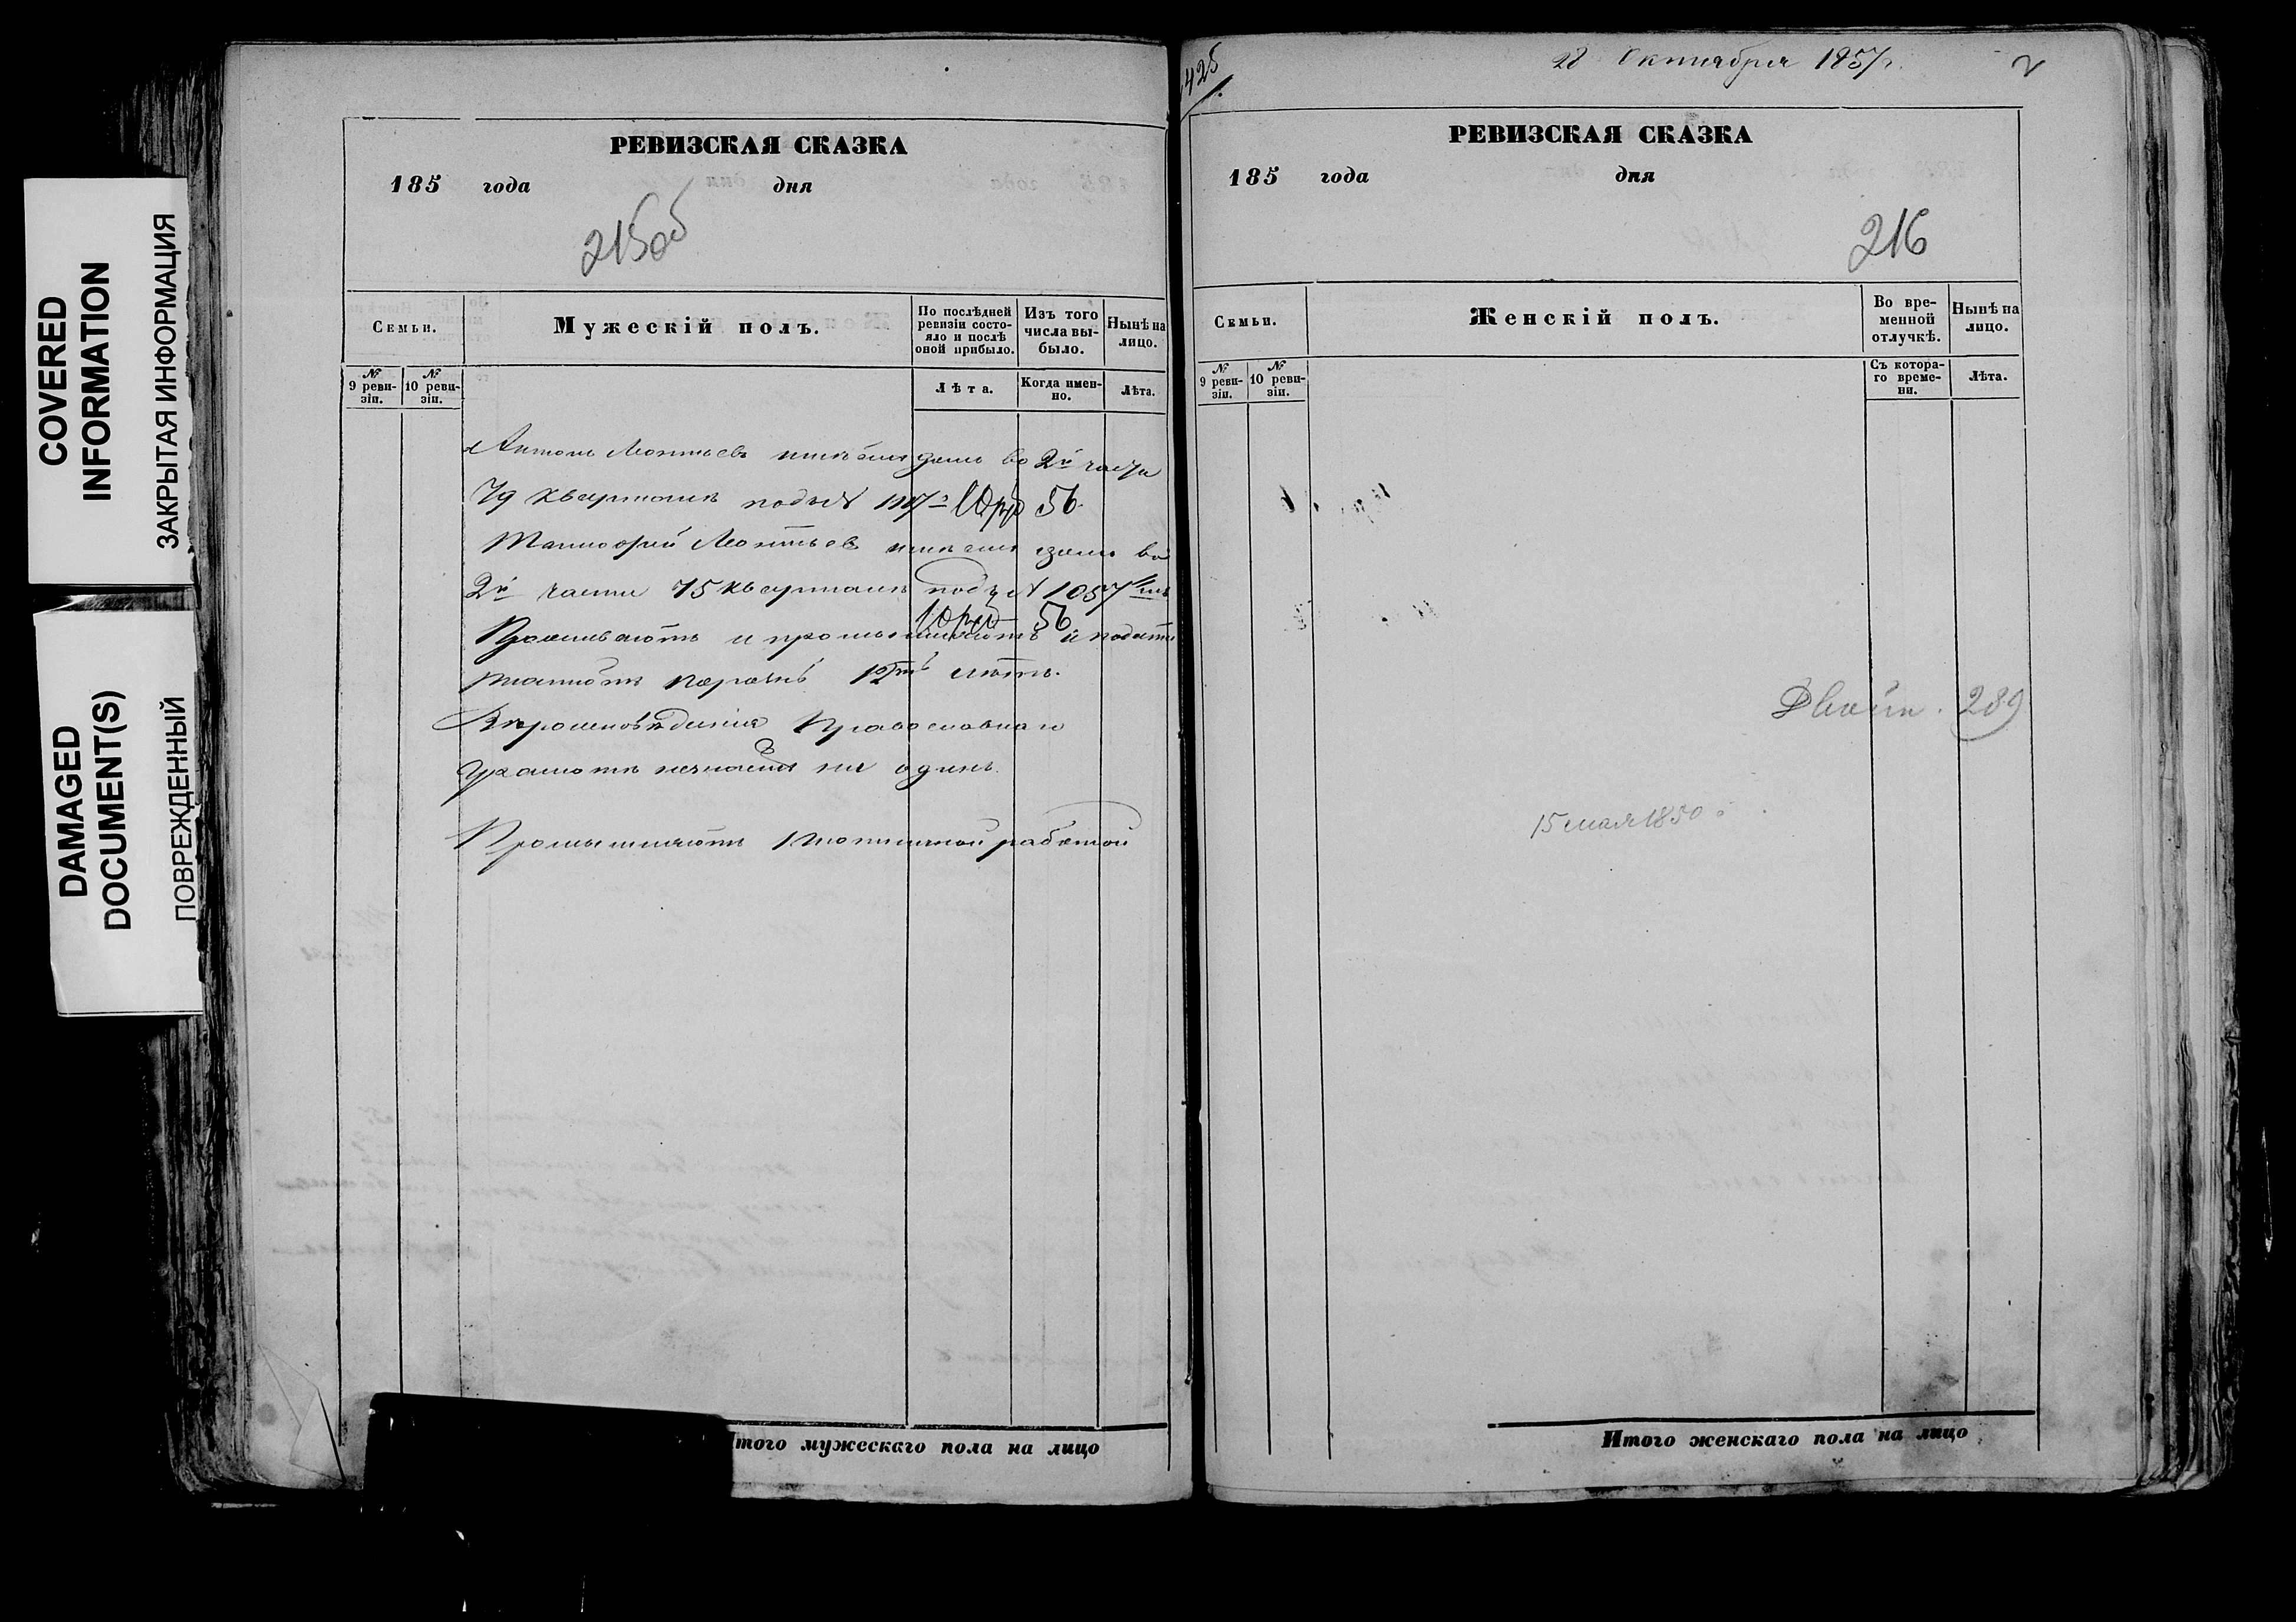 COVERED
INFORMATION
ЗАКРЫТАЯ ИНФОРМАЦИЯ
DAMAGED
DOCUMENT(S)
ПОВРЕЖДЕННЫЙ
РЕВИЗСКАЯ СКАЗКА
185 года дня
215об
Семьи.
Мужескій полъ.
По послѣдней ревизіи состо-
яло и послѣ
оной прибыло.
Изъ того
числа вы-
было.
Нынѣ на
лицо.
№
9 реви-
зіи.
№
10 реви-
зіи.
Лѣта.
Когда имен-
но.
Лѣта.
Антонъ Леонтьевъ домъ во 2й части
79 квартала подъ №
56
Тимофей Леонтьевъ домъ во
2й части 75 квартала подъ № 1057
56
Проживаютъ и промышляютъ и подати
платятъ 12
Вѣроисповѣданія Православнаго
Грамотѣ незнаетъ ни одинъ.
Промышляютъ работой
Итого мужескаго пола на лицо
425
28 Октября 1857г.
2
РЕВИЗСКАЯ СКАЗКА
185 года дня
216
Семьи.
Женскій полъ.
Во вре-
менной
отлучкѣ.
Нынѣ на
лицо.
№
9 реви-
зіи.
№
10 реви-
зіи.
Съ котора-
го време-
ни.
Лѣта.
289
15 мая 1850
Итого женскаго пола на лицо